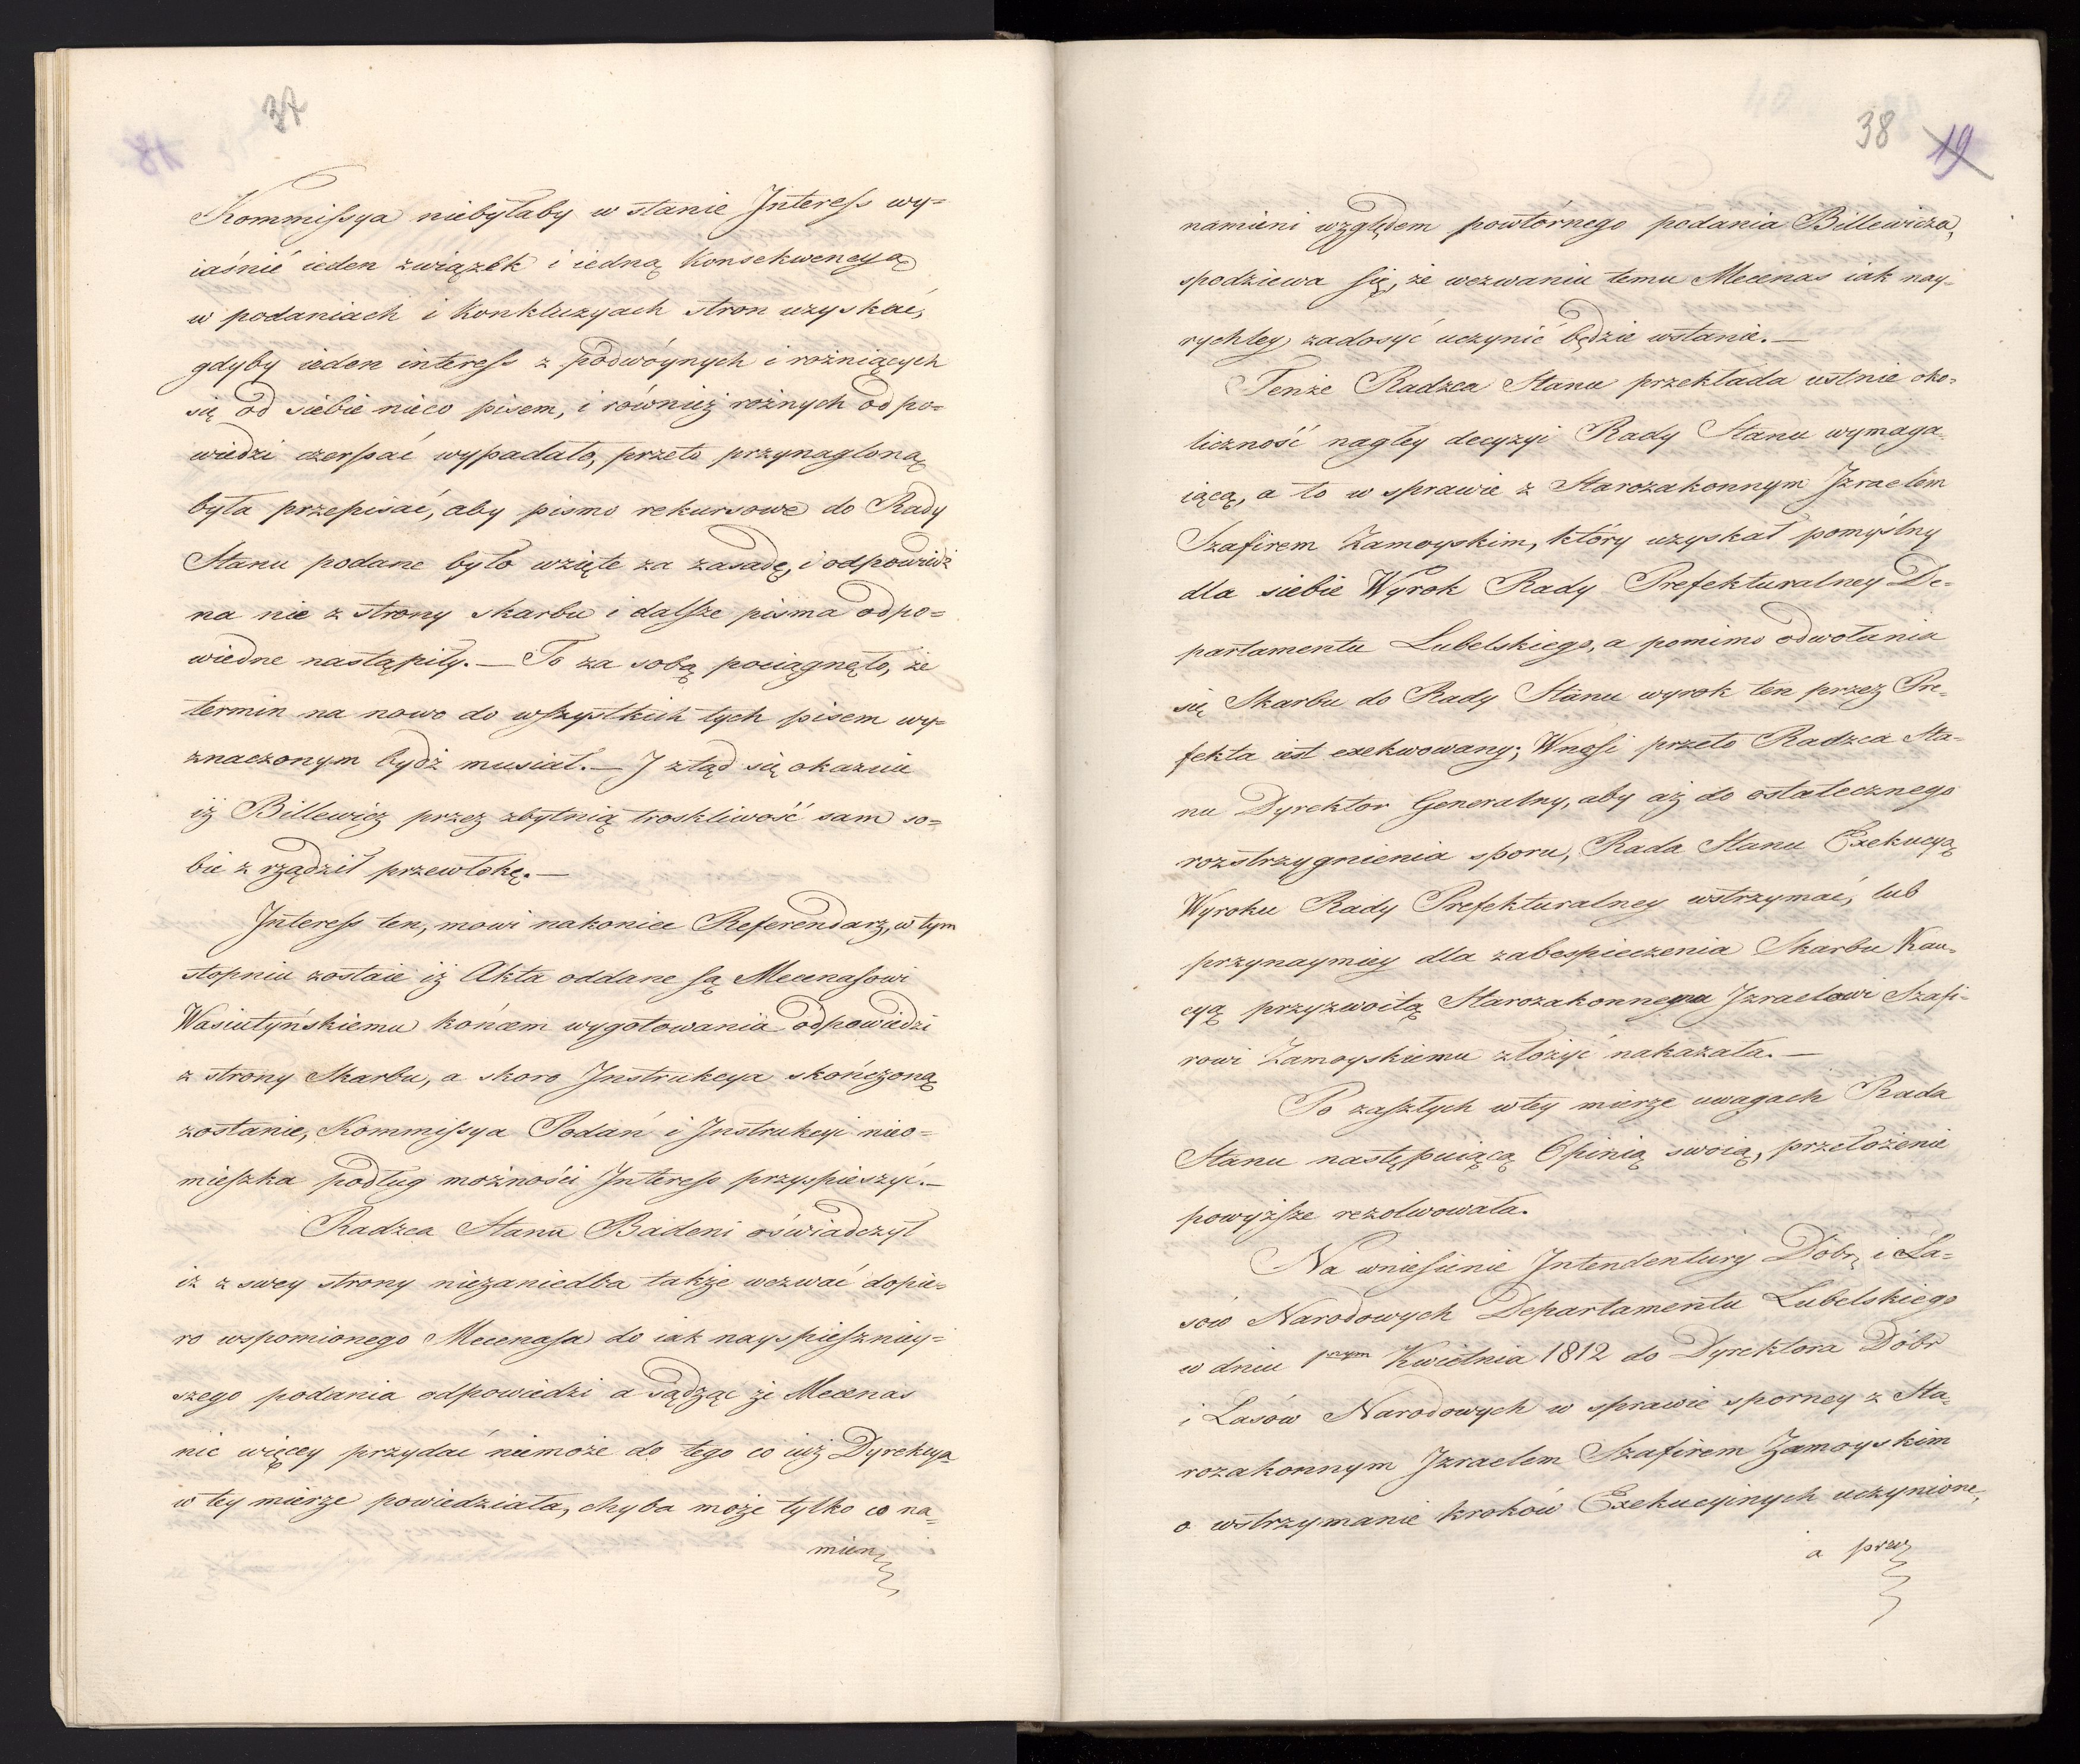 37
Kommissya niebyłaby w stanie Interess wy=
iaśnić ieden związek i iedną Konsekwencyą
w podaniach i Konkluzyach stron uzyskać,
gdyby ieden interess z podwóynych i rożniących
się od siebie nieco pisem, i również rożnych odpo=
wiedzi czerpać wypadało, przeto przynagloną
była przepisać, aby pismo rekursowe do Rady
Stanu podane było wzięte za zasadę, i odpowiedź
na nie z strony skarbu i dalsze pisma odpo=
wiedne nastąpiły.— To za sobą pociągnęło, że
termin na nowo do wszystkich tych pisem wy=
znaczonym bydź musiał.— I ztąd się okazuie
iż Billewicz przez zbytnią troskliwość sam so=
bie zrządził przewłokę.—
Interess ten, mowi nakoniec Referendarz, w tym
stopniu zostaie iż Akta oddane są Mecenasowi
Wasiutyńskiemu końcem wygotowania odpowiedzi
z strony Skarbu, a skoro Instrukcya skończoną
zostanie, Kommissya Podań i Instrukcyi nieo=
mieszka podług możności Interess przyspieszyć.—
Radzca Stanu Badeni oświadczył
iż z swey strony niezaniedba także wezwać dopie=
ro wspomionego Mecenasa do iak nayspieszniey=
szego podania odpowiedzi a sądząc że Mecenas
nic więcey przydać niemoże do tego co iuż Dyrekcya
w tey mierze powiedziała, chyba może tylko co na=
mien
38 19
namieni względem powtórnego podania Billewicza,
spodziewa się, że wezwaniu temu Mecenas iak nay=
rychley zadosyć uczynić będzie wstanie.—
Tenże Radzca Stanu przekłada ustnie oko=
liczność nagłey decyzyi Rady Stanu wymaga=
iącą, a to w sprawie z Starozakonnym Izraelem
Szafirem Zamoyskim, który uzyskał pomyślny
dla siebie Wyrok Rady Prefekturalney De=
partamentu Lubelskiego, a pomimo odwołania
się Skarbu do Rady Stanu wyrok ten przez Pre=
fekta iest exekwowany; Wnosi przeto Radzca Sta=
nu Dyrektor Generalny, aby aż do ostatecznego
rozstrzygnienia sporu, Rada Stanu Exekucyą
Wyroku Rady Prefekturalney wstrzymać, lub
przynaymiey dla zabespieczenia Skarbu Kau=
cyą przyzwoitą Starozakonnemu Izraelowi Szafi=
rowi Zamoyskiemu złożyć nakazała.—
Po zaszłych wtey mierze uwagach Rada
Stanu następuiącą Opinią swoią, przełożenie
powyższe rezolwowała.
Na wniesienie Intendentury Dóbr i La=
sów Narodowych Departamentu Lubelskiego
w dniu 1nym Kwietnia 1812 do Dyrektora Dóbr
i Lasów Narodowych w sprawie sporney z Sta=
rozakonnym Izraelem Szafirem Zamoyskim
o wstrzymanie kroków Exekucyinych uczynione,
a przez